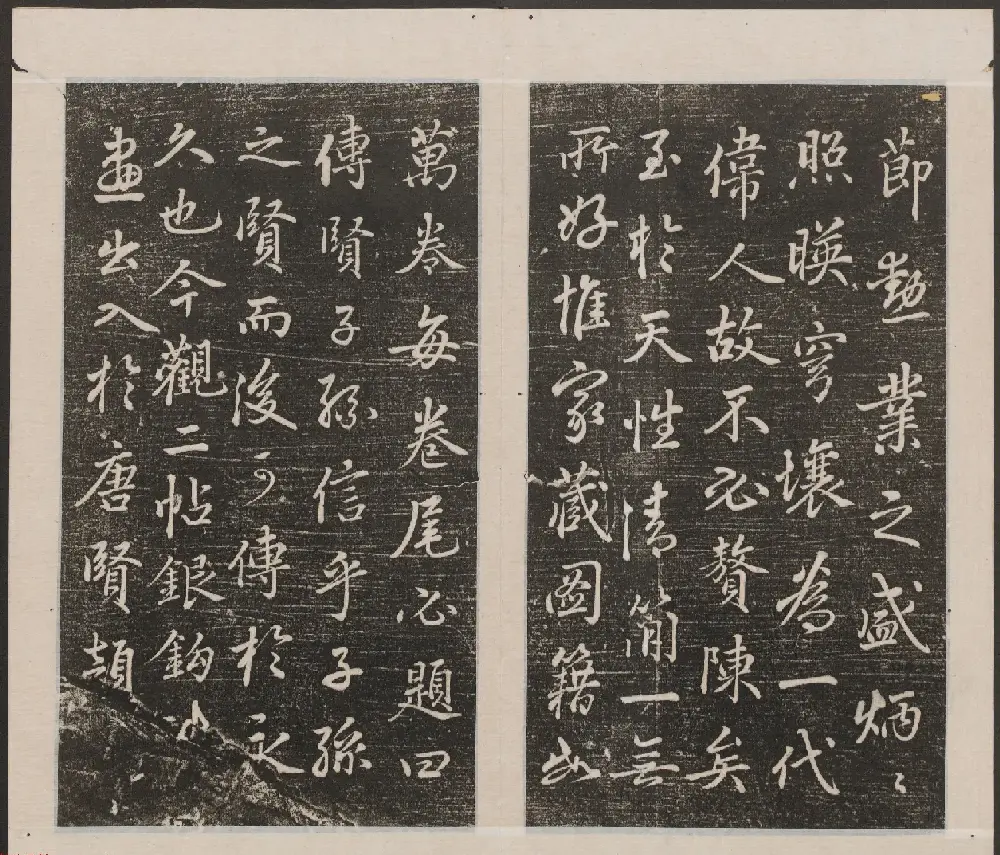 節勳業之盛炳〻
照暎穹壤為一代
偉人故不必贅陳矣
至於天性清簡一無
所好惟家藏圖籍
萬卷每卷尾必題曰
傳賢子孫信乎子孫
之賢而後可傳於永
久也今觀二帖銀鈎
畫出入於唐賢頡